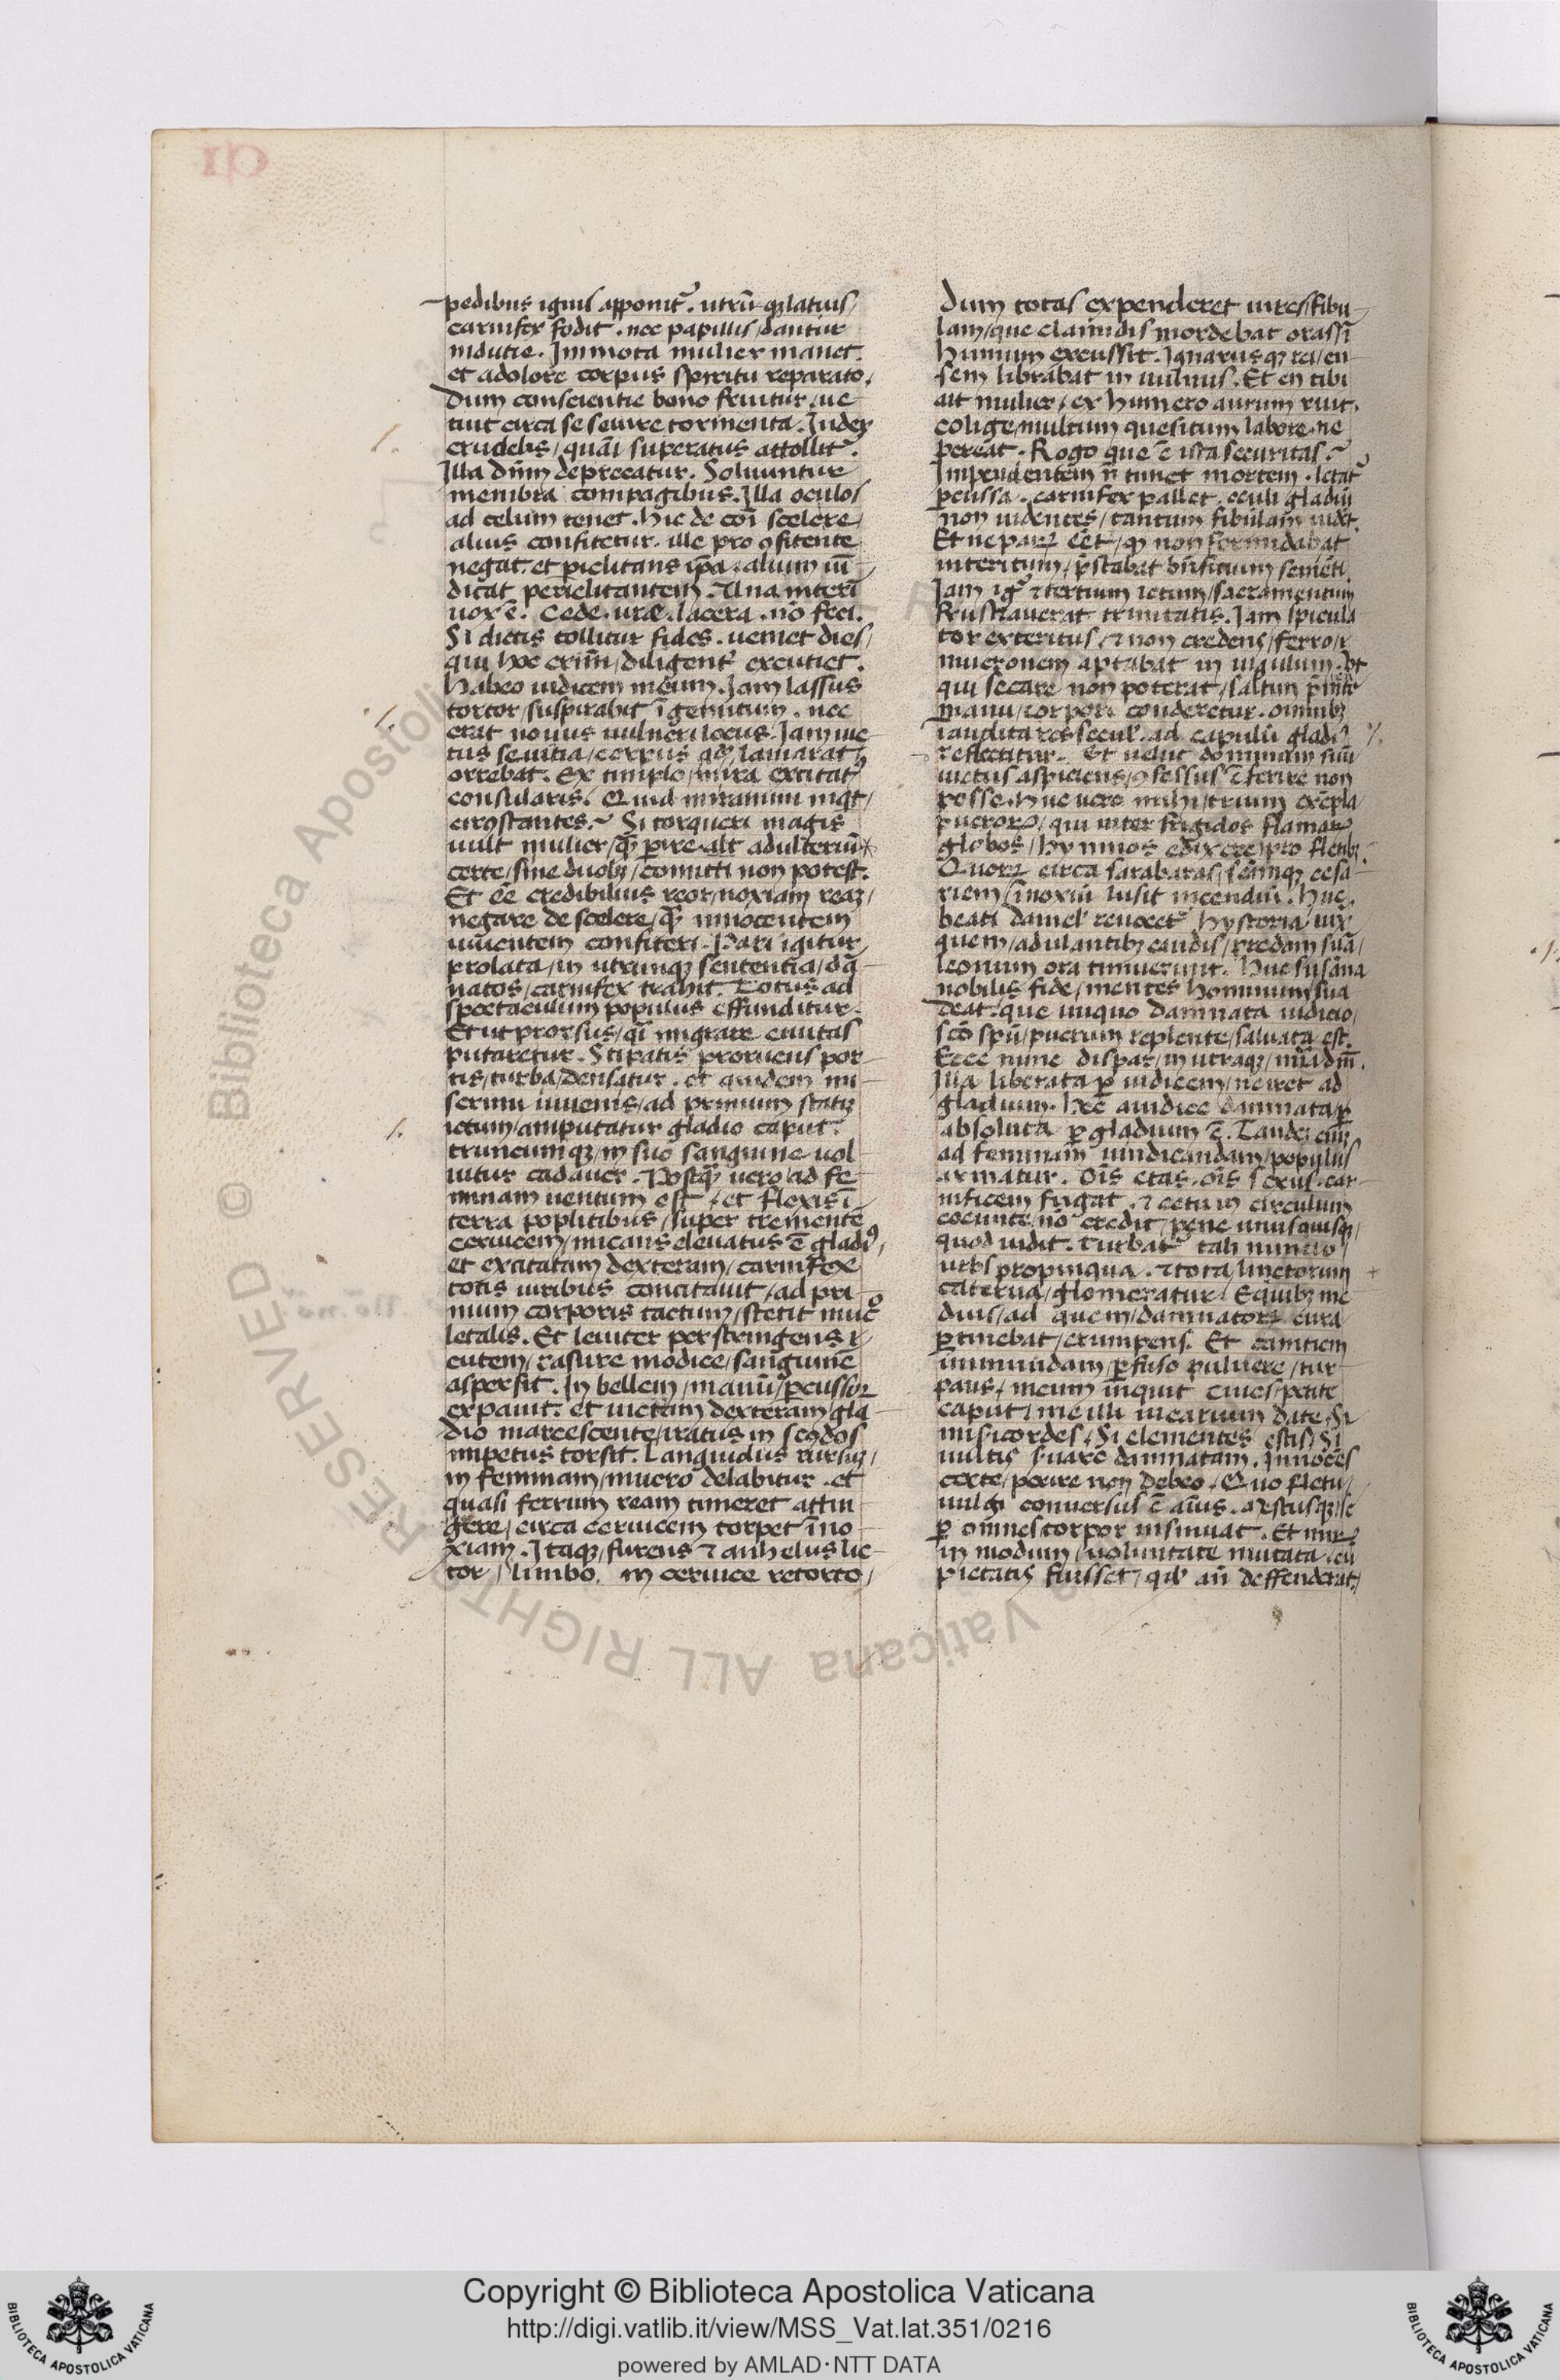 pedibus ignis apponit᷑. utrū qȝ latus/
carnifex fodit. nec papillis/dantur
indutie. Immota mulier manet.
et adolore corpus spiritu reparato,
dum conscientie bono fruitur/ue
tuit circa se seuire tormenta. Iudex
crudelis/quāi superatus attollit᷑.
Illa dnm̄ depreeatur. Soluuntur
membra compagibus. Illa oculos
ad celum tenet. hic de coī scelere/
alius confitetur. ille pro ꝯfitente
negat. et piclitans ip̄a. alium iū
dicat periclitantem. Una interī
uox ē. Cede. ure. lacera. nō feci.
Si dictis tollitur fides. ueniet dies/
qui hoc crim̄/diligent᷑ excutiet.
habeo iudicem meum. Iam lassus
tortor/suspirabit ī gemitum. nec
erat nouus uulneri locus. Iam uic
tus seuitia/corpus qȝ laniarat h
orrebat. Ex timplo/mira excitat᷑
consularis. Quid miramini inqt/
circūstantes. Si torqueri magis
uult mulier/qȝ pire. alt adulteriū
certe/sine duobȝ/comitti non potest.
Et eē credibilius reor/noxiam reaȝ/
negare de scelere/qȝ innocentem
iuuentem confiteri. Pari igitur
prolata/in utrunqȝ sententia/dā
natos/carnifex trahit. Totus ad
spectaculum populus effunditur.
Et ut prorsus/qī migrare ciuitas
putaretur. Stipatis proruens por
tis/turba/densatur. et quidem mi
serimi iuuenis/ad primum statȝ
ictum/amputatur gladio caput.
truncumqȝ/in suo sanguine uol
uitur cadauer. Postqȝ uero ad fe
minam uentum est/et flexis ī
terra poplitibus/super trementē
ceruicem/micans eleuatus ē gladi᷒/
et excitatam dexteram/carnifex
totis uiribus concitauit/ad pri
mum corporis tactum/stetit mucͦ
letalis. Et leuiter perstringens
cutem/rasure modice/sanguinē
aspersit. In bellem/manū/pcussor
expauit. et uictam dexteram/gla
dio marcescente/iratus in scdos
impetus torsit. Languidus rursuȝ/
in feminam/mucro delabitur. et
quasi ferrum ream timeret attin
gere/circa ceruicem torpet īno
xiam. Itaqȝ/furens ⁊ anhelus lic
tor/limbo. in ceruice retorto/
dum totas expenderet uires/fibu
lam/que clamidis mordebat orassī
humum excussit. Ignarusqȝ rei/en
sem librabat in uulnus. Et en tibi
ait mulier/ex humero aurum ruit.
colige/multum quesitum labore. ne
pereat. Rogo que ē ista securitas.
Impendentem n̄ timet mortem. letat᷑
pcussa. carnifex pallet. oculi gladiū
non uidentes/tantum fibulam uidēt.
Et ne paȝ eēt/qȝ non formidabat
interitum/p̄stabat bn̄ficium seuiēti.
Iam ig᷑ ⁊ tertium ictum/sacramentum
frustrauerat trinitatis. Iam spicula
tor exteritus/⁊ non credens/ferro/
mucronem aptabat in iugulum. ut
qui secare non poterat/saltim p̄mēte
manu/corpori conderetur. omnibȝ
īaudita res secul᷑. ad capulū gladi᷒
reflectitur. Et uelut dominum suū
uictus aspiciens/ꝯfessus ē ferire non
posse. huc uero mihi/trium exēpla
pueroꝝ/qui inter frigidos flamaꝝ
globos/hymnos edixere/pro fletibȝ.
Quoꝝ circa sarabaras/scāmqȝ cesa
riem/īnoxiū lusit incendiū. huc
beati daniel᷑ reuocet᷑ hystoria/iux
quem/adulantibȝ caudis/predam suā/
leonum ora timuerunt. huc susāna
nobilis fide/mentes hominum sua
deat. que iniquo damnata iudicio/
scō spū/puerum replente/saluata est.
Ecce nunc dispar/in utraqȝ/mīa dnī.
Illa liberata p iudicem/ne iret ad
gladium. hec aiudice damnata/
absoluta p gladium ē. Tandeȝ eniȝ
ad feminam uindicandam/populus
armatur. Oīs etas. oīs sexus. car
nificem fugat. ⁊ cetu in circulum
coeunte/nō credit/pene unusquisqȝ/
quod uidit. turbat᷑ tali nuncio
urbs propinqua. ⁊ tota/lictorum
caterua/glomeratur. Equibȝ me
dius/ad quem/damnatoꝝ cura
ptinebat/erumpens. Et canitiem
immundam/pfuso puluere/tur
pans/meum inquit ciues/petite
caput/me illi uicarium date. Si
misicordes. Si clementes estis. Si
uultis seruare damnatam. Innocēs
certe/perire non debeo. Quo fletu/
uulgi conuersus ē aīus. mestusqȝ/se
p omnes torpor insinuat. Et miꝝ
in modum/uoluntate mutata/cū
pietatis fuisset/qd᷑ an̄ deffenderat/
Copyright © Biblioteca Apostolica Vaticana
http://digi.vatlib.it/view/MSS_Vat.lat.351/0216
powered by AMLAD·NTT DATA
BIBLIOTECA APOSTOLICA VATICANA
BIBLIOTECA APOSTOLICA VATICANA
© Biblioteca Apostolica Vaticana ALL RIGHTS RESERVED